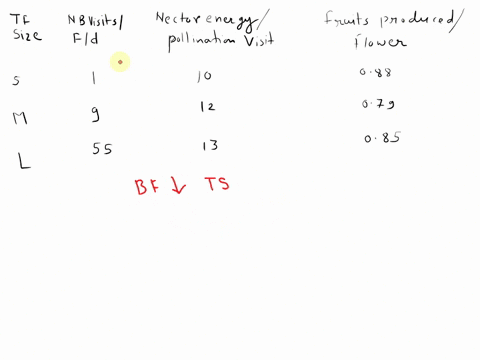 TF Size NB Visits/ F/d Nector energy/ pollination Visit Fruits produced/ Flower
S 1 10 0.88
M 9 12 0.79
L 55 13 0.85
BF ↓ TS